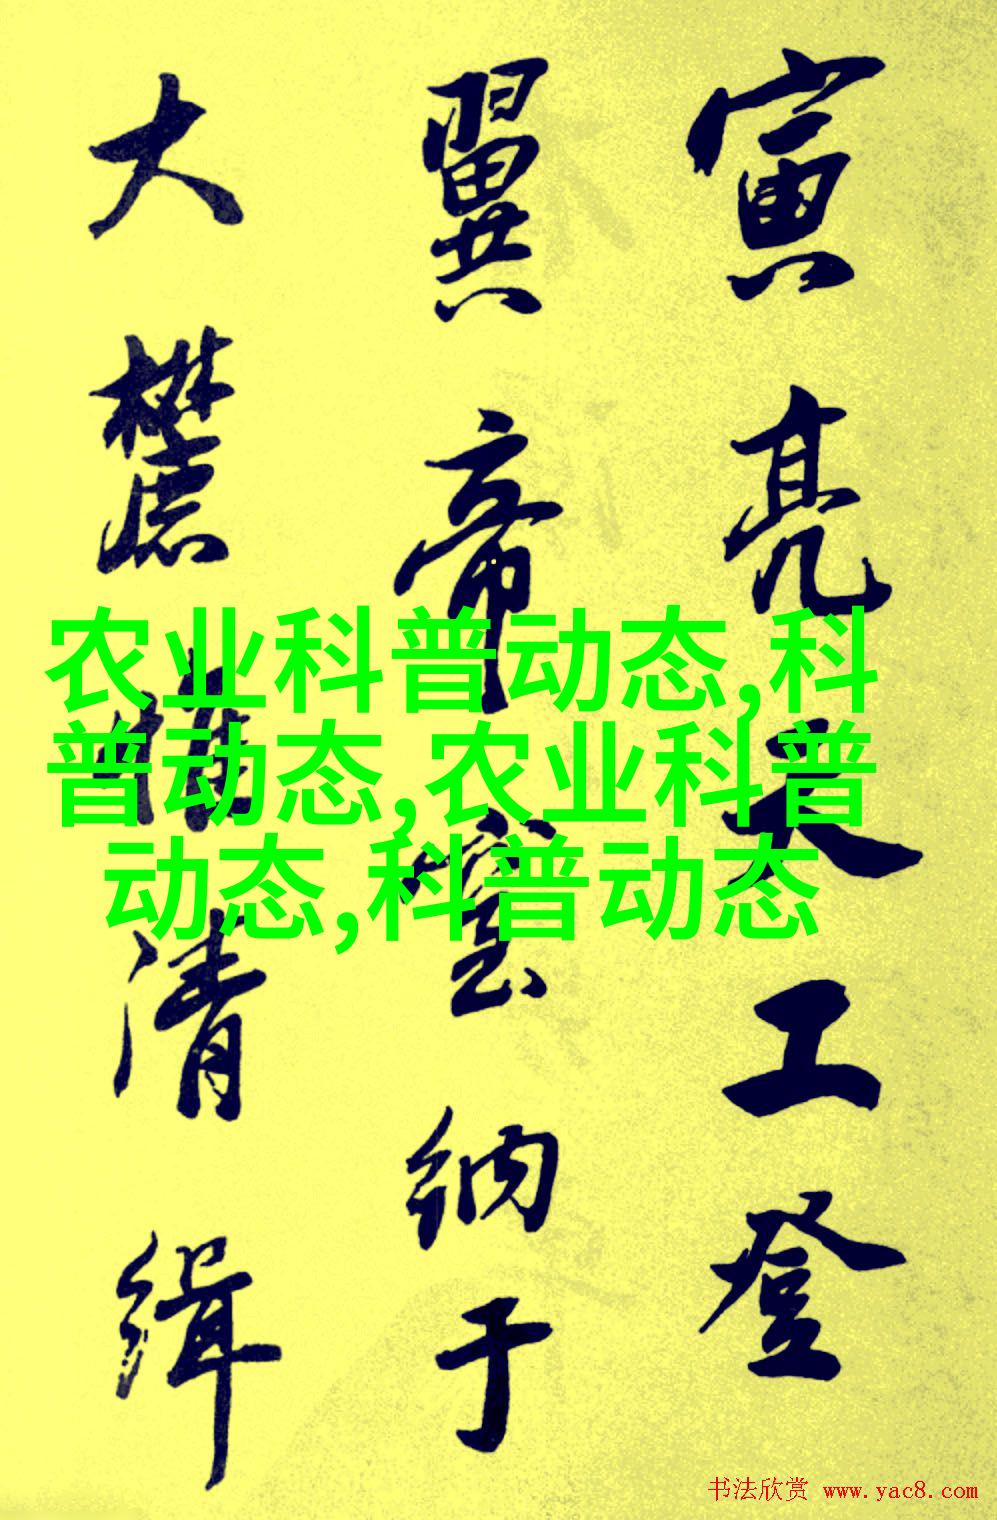 寅亮天工登
翼帝室纳于
大麓惟清缉
农业科普动态,科
普动态,农业科普
动态,科普动态
书法欣赏 www.yac8.com